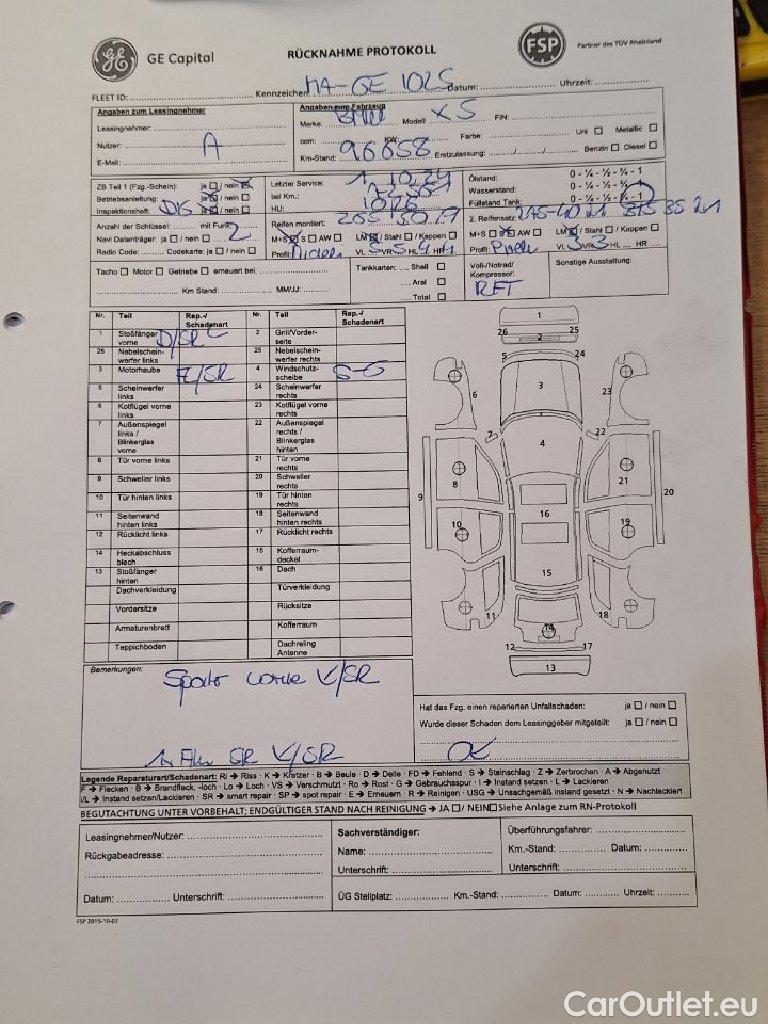 GE Capital
RÜCKNAHME PROTOKOLL
FSP
Partner des TÜV Rheinland
FLEET ID: Kennzeichen: MA-GE 1025 Datum: Uhrzeit:
Angaben zum Leasingnehmer
Leasingnehmer:
Nutzer: A
E-Mail:
Angaben zum Fahrzeug
Marke: BMW Modell: X5 FIN:
ccm: KW: Farbe: Uni Metallic
Km-Stand: 96658 Erstzulassung: Benzin Diesel
ZB Teil 1 (Fzg.-Schein): ja / nein
Betriebsanleitung: ja / nein
Inspektionsheft: ja / nein
Letzter Service:
bei Km.:
HU: 10.26
Ölstand: 0 - ¼ - ½ - ¾ - 1
Wasserstand: 0 - ¼ - ½ - ¾ - 1
Füllstand Tank: 0 - ¼ - ½ - ¾ - 1
Anzahl der Schlüssel: mit Funk: 2
Navi Datenträger: ja / nein
Radio Code: Codekarte: ja / nein
Reifen montiert:
M+S S AW LM / Stahl / Kappen
Profil: VL 5 VR 5 HL 4 HR 4
2. Reifensatz: 275-40 21 315 35 21
M+S S AW LM / Stahl / Kappen
Profil: VL 3 VR 3 HL HR
Tacho Motor Getriebe erneuert bei:
Km Stand: MM/JJ:
Tankkarten: Shell
Aral
Total
Voll-/Notrad/
Kompressor:
RFT
Sonstige Ausstattung:
Nr. Teil Rep.-/ Schadenart Nr. Teil Rep.-/ Schadenart
1 Stoßfänger vorne D/SR 2 Grill/Vorderseite
25 Nebelscheinwerfer links 25 Nebelscheinwerfer rechts
3 Motorhaube 4 Windschutzscheibe S-G
5 Scheinwerfer links 24 Scheinwerfer rechts
6 Kotflügel vorne links 23 Kotflügel vorne rechts
7 Außenspiegel links / Blinkerglas vorne 22 Außenspiegel rechts / Blinkerglas hinten
8 Tür vorne links 21 Tür vorne rechts
9 Schweller links 20 Schweller rechts
10 Tür hinten links 19 Tür hinten rechts
11 Seitenwand hinten links 18 Seitenwand hinten rechts
12 Rücklicht links 17 Rücklicht rechts
14 Heckabschluss blech 15 Kofferraum-deckel
13 Stoßfänger hinten 16 Dach
Dachverkleidung Türverkleidung
Vordersitze Rücksitze
Armaturenbrett Kofferraum
Teppichboden Dachreling Antenne
1
26 25
2
5 24
6 3 23
7 22
4
8 21
9 20
16
10 19
15
11 18
14
12 17
13
Bemerkungen:
K/SR
SR K/SR
Hat das Fzg. einen reparierten Unfallschaden: ja / nein
Wurde dieser Schaden dem Leasinggeber mitgeteilt: ja / nein
OK
Legende Reparaturart/Schadenart: Ri → Riss - K → Kratzer - B → Beule - D → Delle - FD → Fehlend - S → Steinschlag - Z → Zerbrochen - A → Abgenutzt
F → Flecken - B → Brandfleck, -löch - Lo → Loch - VS → Verschmutzt - Ro → Rost - G → Gebrauchsspur - I → Instand setzen - L → Lackieren
I/L → Instand setzen/Lackieren - SR → smart repair - SP → spot repair - E → Erneuern - R → Reinigen - USG → Unsachgemäß instand gesetzt - N → Nachlackiert
BEGUTACHTUNG UNTER VORBEHALT; ENDGÜLTIGER STAND NACH REINIGUNG → JA / NEIN Siehe Anlage zum RN-Protokoll
Leasingnehmer/Nutzer:
Rückgabeadresse:
Datum: Unterschrift:
Sachverständiger:
Name:
Unterschrift:
Überführungsfahrer:
Km.-Stand: Datum:
Unterschrift:
ÜG Stellplatz: Km.-Stand: Datum: Uhrzeit:
FSP 2015-10-07
CarOutlet.eu